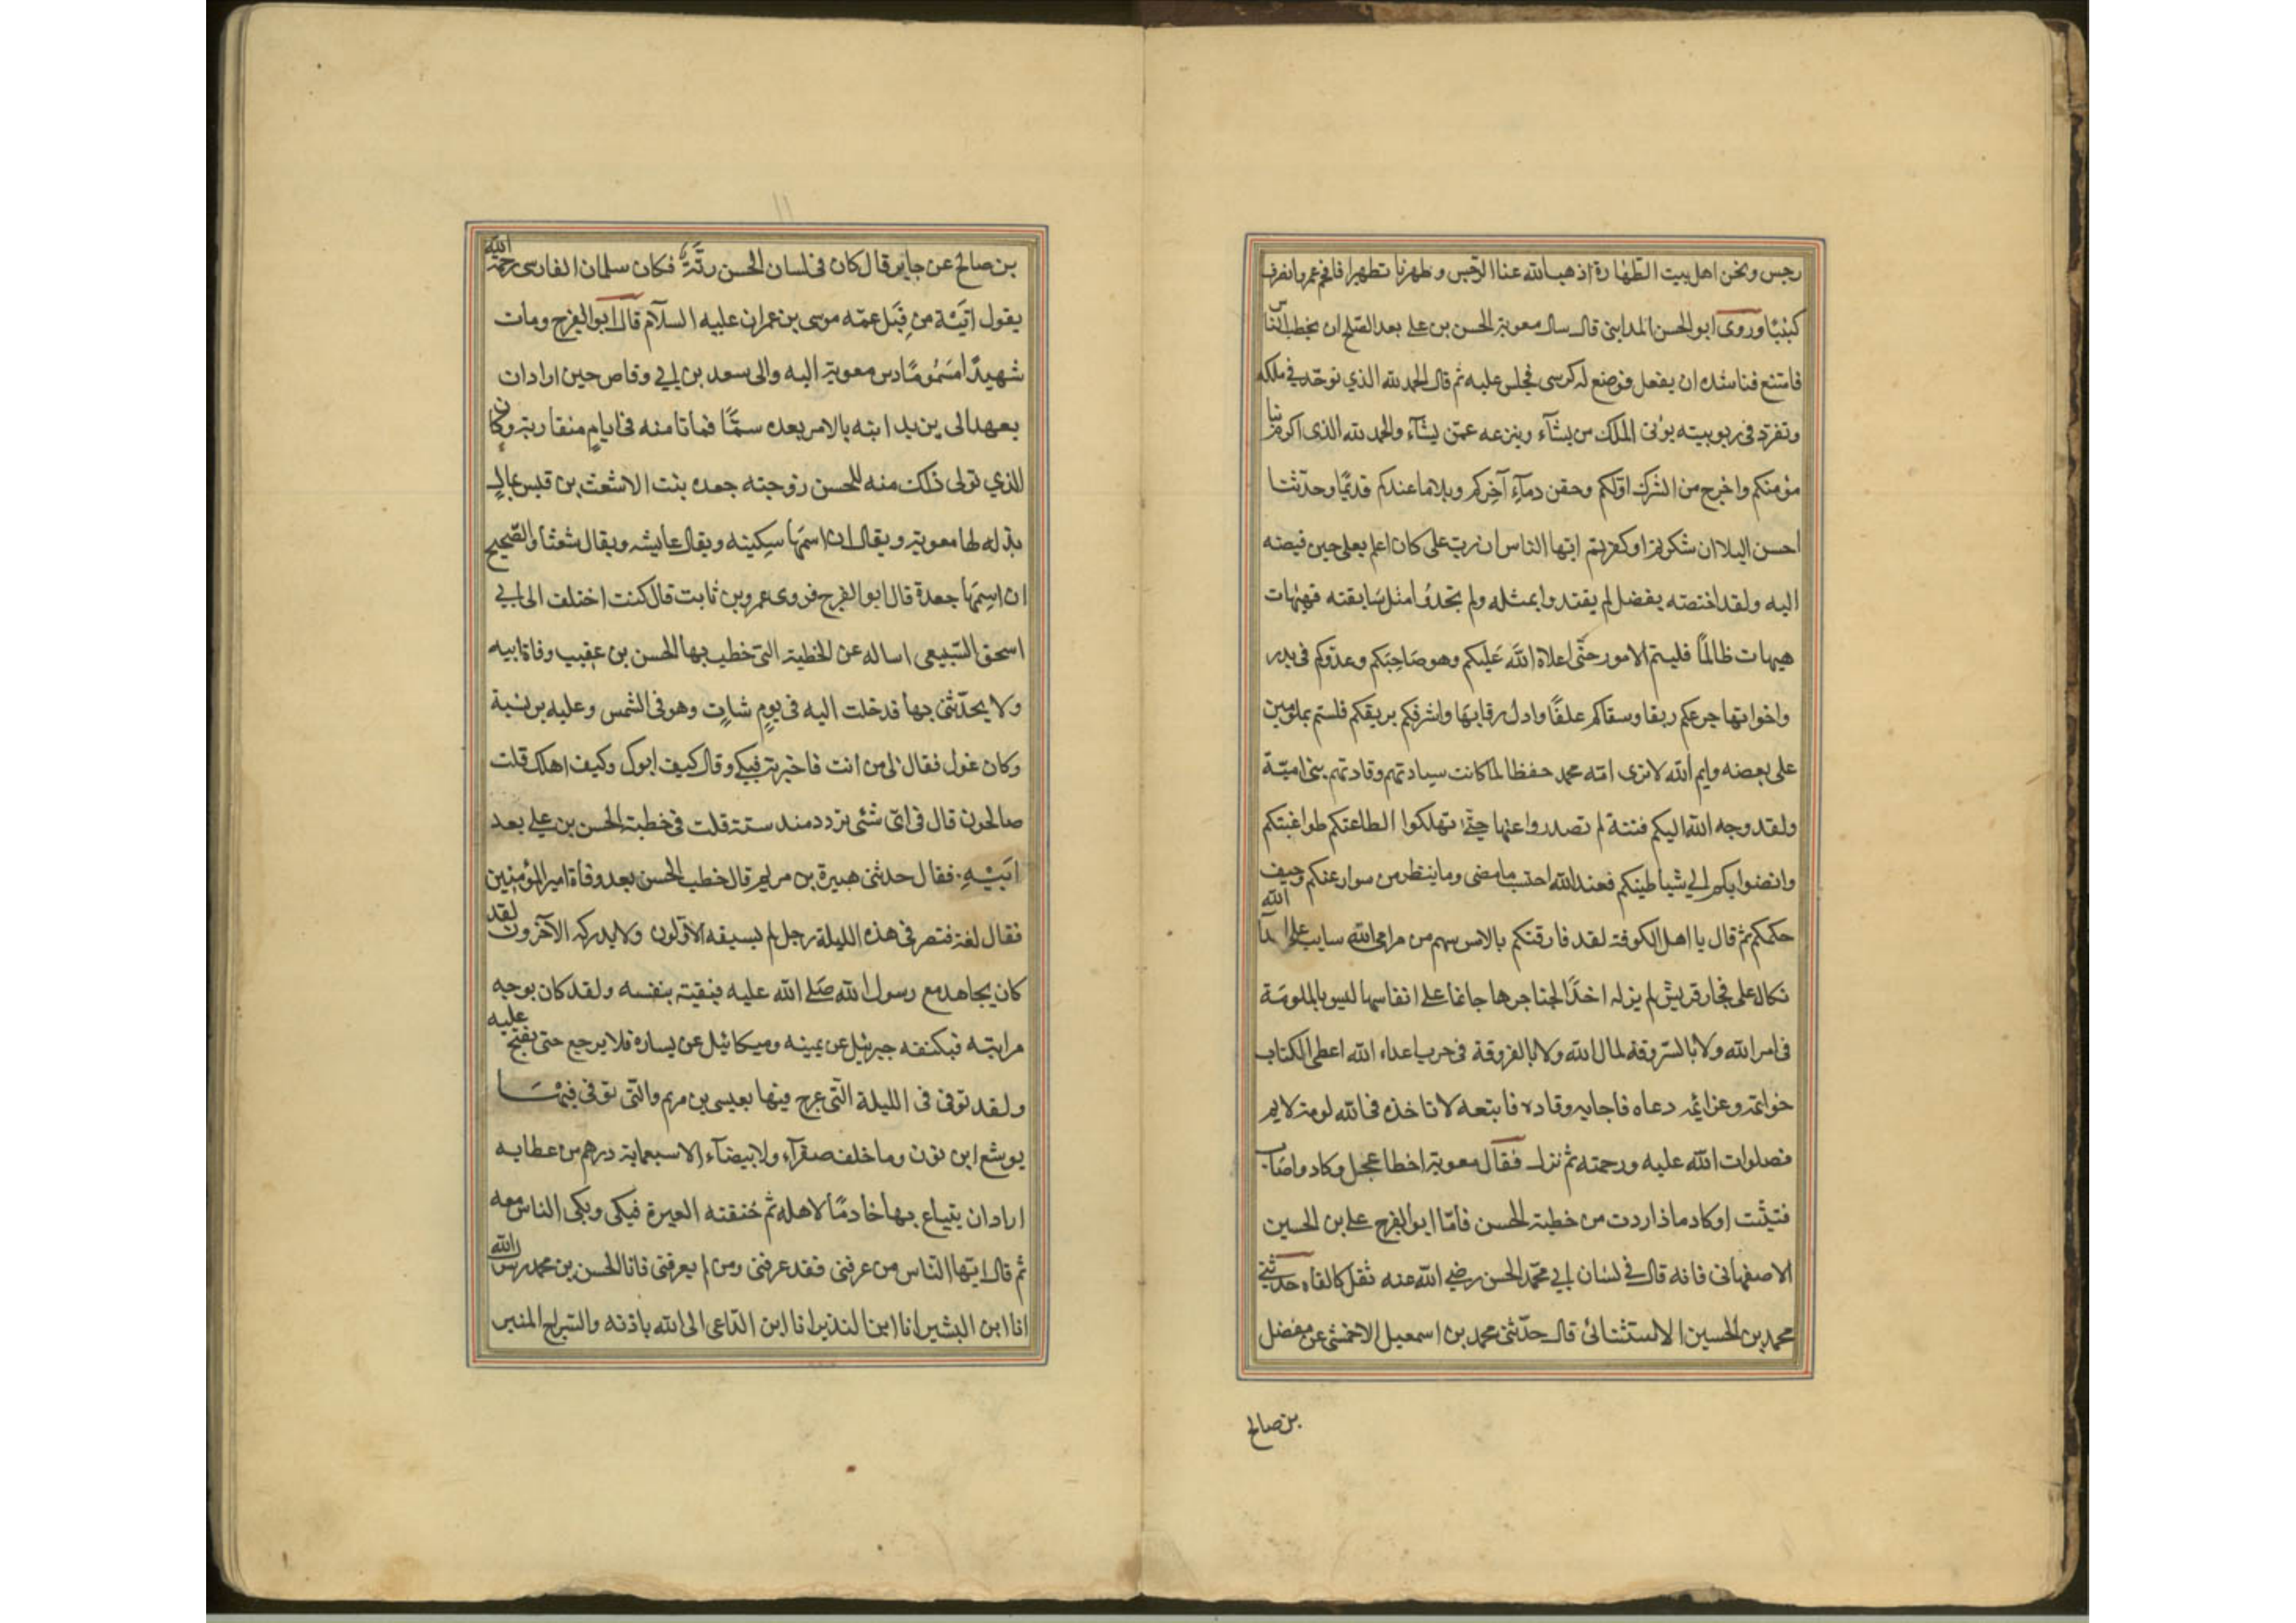 رجس ونحن اهل بيت الطهارة اذهب الله عنا الرّجس وطهرنا تطهيرا فافحم عمر وانصرف
كئيبًا وروى ابو الحسن المدايني قال سال معوية الحسن بن علي بعد الصّلح ان يخطب النّاس
فامتنع فناشده ان يفعل فوضع له كرسى فجلس عليه ثم قال الحمد لله الذي توحّد في ملكه
وتفرّد فى ربوبيته يؤتى الملك من يشآء وينزعه عمّن يشآء والحمد لله الذى اكرم بنا
مؤمنكم واخرج من الشرك اوّلكم وحقن دمآء آخركم وبلاءنا عندكم قديمًا وحديثا
احسن البلا ان شكرتم او كفرتم ايها الناس ان ربّ علىّ كان اعلم بعلى حين قبضه
اليه ولقد اختصه بفضل لم يعتدوا بمثله ولم تجدوا مثل سابقته فهيهات
هيهات طالمًا قلبتم الامور حتّى اعلاه الله عَليكم وهو صَاحِبَكم وعدوّكم فى بدر
واخواتها جرعكم رنقا وسقاكم علقًا واذل رقابَها واشرقكم بريقكم فلستم بملومين
على بغضه وايم الله لا ترى امّة محمد خفضا لما كانت سيادتهم وقادتهم بنى اميّة
ولقد وجه الله اليكم فتنة لم تصدروا عنها حتّى تهلكوا الطاعتكم طواغيتكم
وانضوائكم الى شياطينكم فعند الله احتسب ما مضى وما ينتظر من سوار عنكم وحيف
حكمكم ثم قال يا اهل الكوفة لقد فارقتكم بالامس سهم من مرامى الله صايب على اعدآ الله
نكال على فجار قريش لم يزل اخذًا بحناجرها جاثما على انفاسها ليس بالملومَة
فى امر الله ولا بالسّروقة لمال الله ولا بالفروقة فى حرب اعداء الله اعطى الكتاب
خواتمه وعزائمه دعاه فاجابه وقاده فاتبعه لا تاخذه فى الله لومة لايم
فصلوات الله عليه ورحمته ثم نزل فقال معوية اخطا عجل او كاد واصَاب
فتثبّت او كاد ماذا اردت من خطبة الحسن فامّا ابو الفرج على بن الحسين
الاصفهانى فانه قال فى لسَان ابى محمّد الحسن رضي الله عنه ثقل كالفافاه حدثنى
محمد بن الحسين الاستثنائى قال حدّثنى محمد بن اسمعيل الاحمشى عن مفضل
بن صالح
بن صالح عن جابر قال كان فى لسان الحسن رتّة فكان سلمان الفارسى رحمه الله
يقول اتيَتْه من قِبَل عمّه موسى بن عمران عليه السلآم قال ابو الفرج ومات
شهيدًا مسمُومًا دس معوية اليه والى سعد بن ابي وقاص حين اراد ان
يعهد الى يزيد ابنه بالامر بعده سمًّا فماتا منه فى ايامٍ متقاربة وكان
الذي تولى ذلك منه للحسن زوجته جعده بنت الاشعث بن قيس بمال
بذله لها معوية ويقال ان اسمَها سكينه ويقال عايشه ويقال شعثا والصّحيح
ان اسمَها جعدة قال ابو الفرج فروى عمرو بن ثابت قال كنت اختلف الى ابي
اسحق السّبيعى اساله عن الخطبة التى خطب بها الحسن بن عقيب وفاة ابيه
ولا يحدّثنى بها فدخلت اليه فى يومٍ شاتٍ وهو فى الشمس وعليه برنسة
وكان غول فقال لى من انت فاخبرته فبكى وقال كيف ابوك وكيف اهلك قلت
صالحون قال فى اىّ شئى تردد منذ سنة قلت فى خطبة الحسن بن علي بعد
ابَيْه فقال حدثنى هبيرة بن مريم قال خطب الحسن بعد وفاة امير المؤمنين
فقال لقد قبض فى هذه الليلة رجل لم يسبقه الاوّلون ولا يدركه الآخرون لقد
كان يجاهد مع رسول الله صَلى الله عليه فيقيه بنفسه ولقد كان يوجهه
برايته فيكنفه جبرئيل عن يمينه وميكائيل عن يساره فلا يرجع حتى يفتح عليه
ولقد توفى فى الليلة الّتى عرج فيها بعيسى بن مريم والّتى توفى فيْهَا
يوشع ابن نون وما خلف صفرآء ولا بيضآء الا سبعماية درهم من عطايه
اراد ان يبتاع بها خادمًا لاهله ثم خنقته العبرة فبكى وبكى الناس معه
ثم قال ايّها النّاس من عرفنى فقد عرفنى ومن لم يعرفنى فانا الحسن بن محمد رسول الله
انا ابن البشير انا ابن النذير انا ابن الدّاعى الى الله باذنه والسّراج المنير